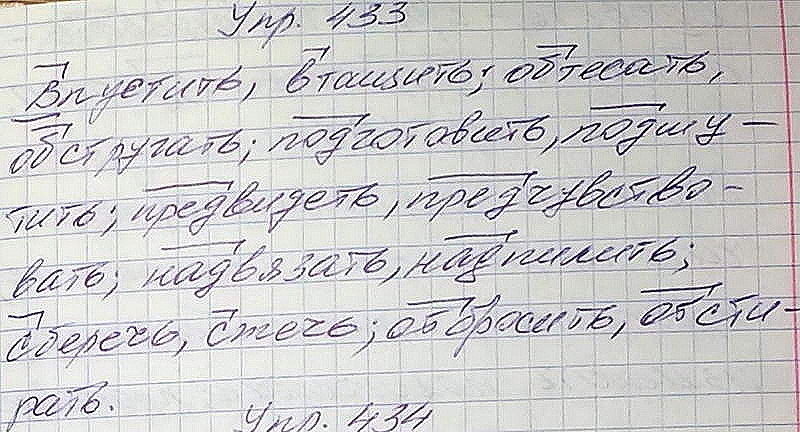 Упр. 433
Впустить, втащить; обтесать,
обстругать; подготовить, подшу-
тить; предвидеть, предчувство-
вать; надвязать, надпилить;
сберечь, сжечь; отбросить, обсти-
рать.
Упр. 434